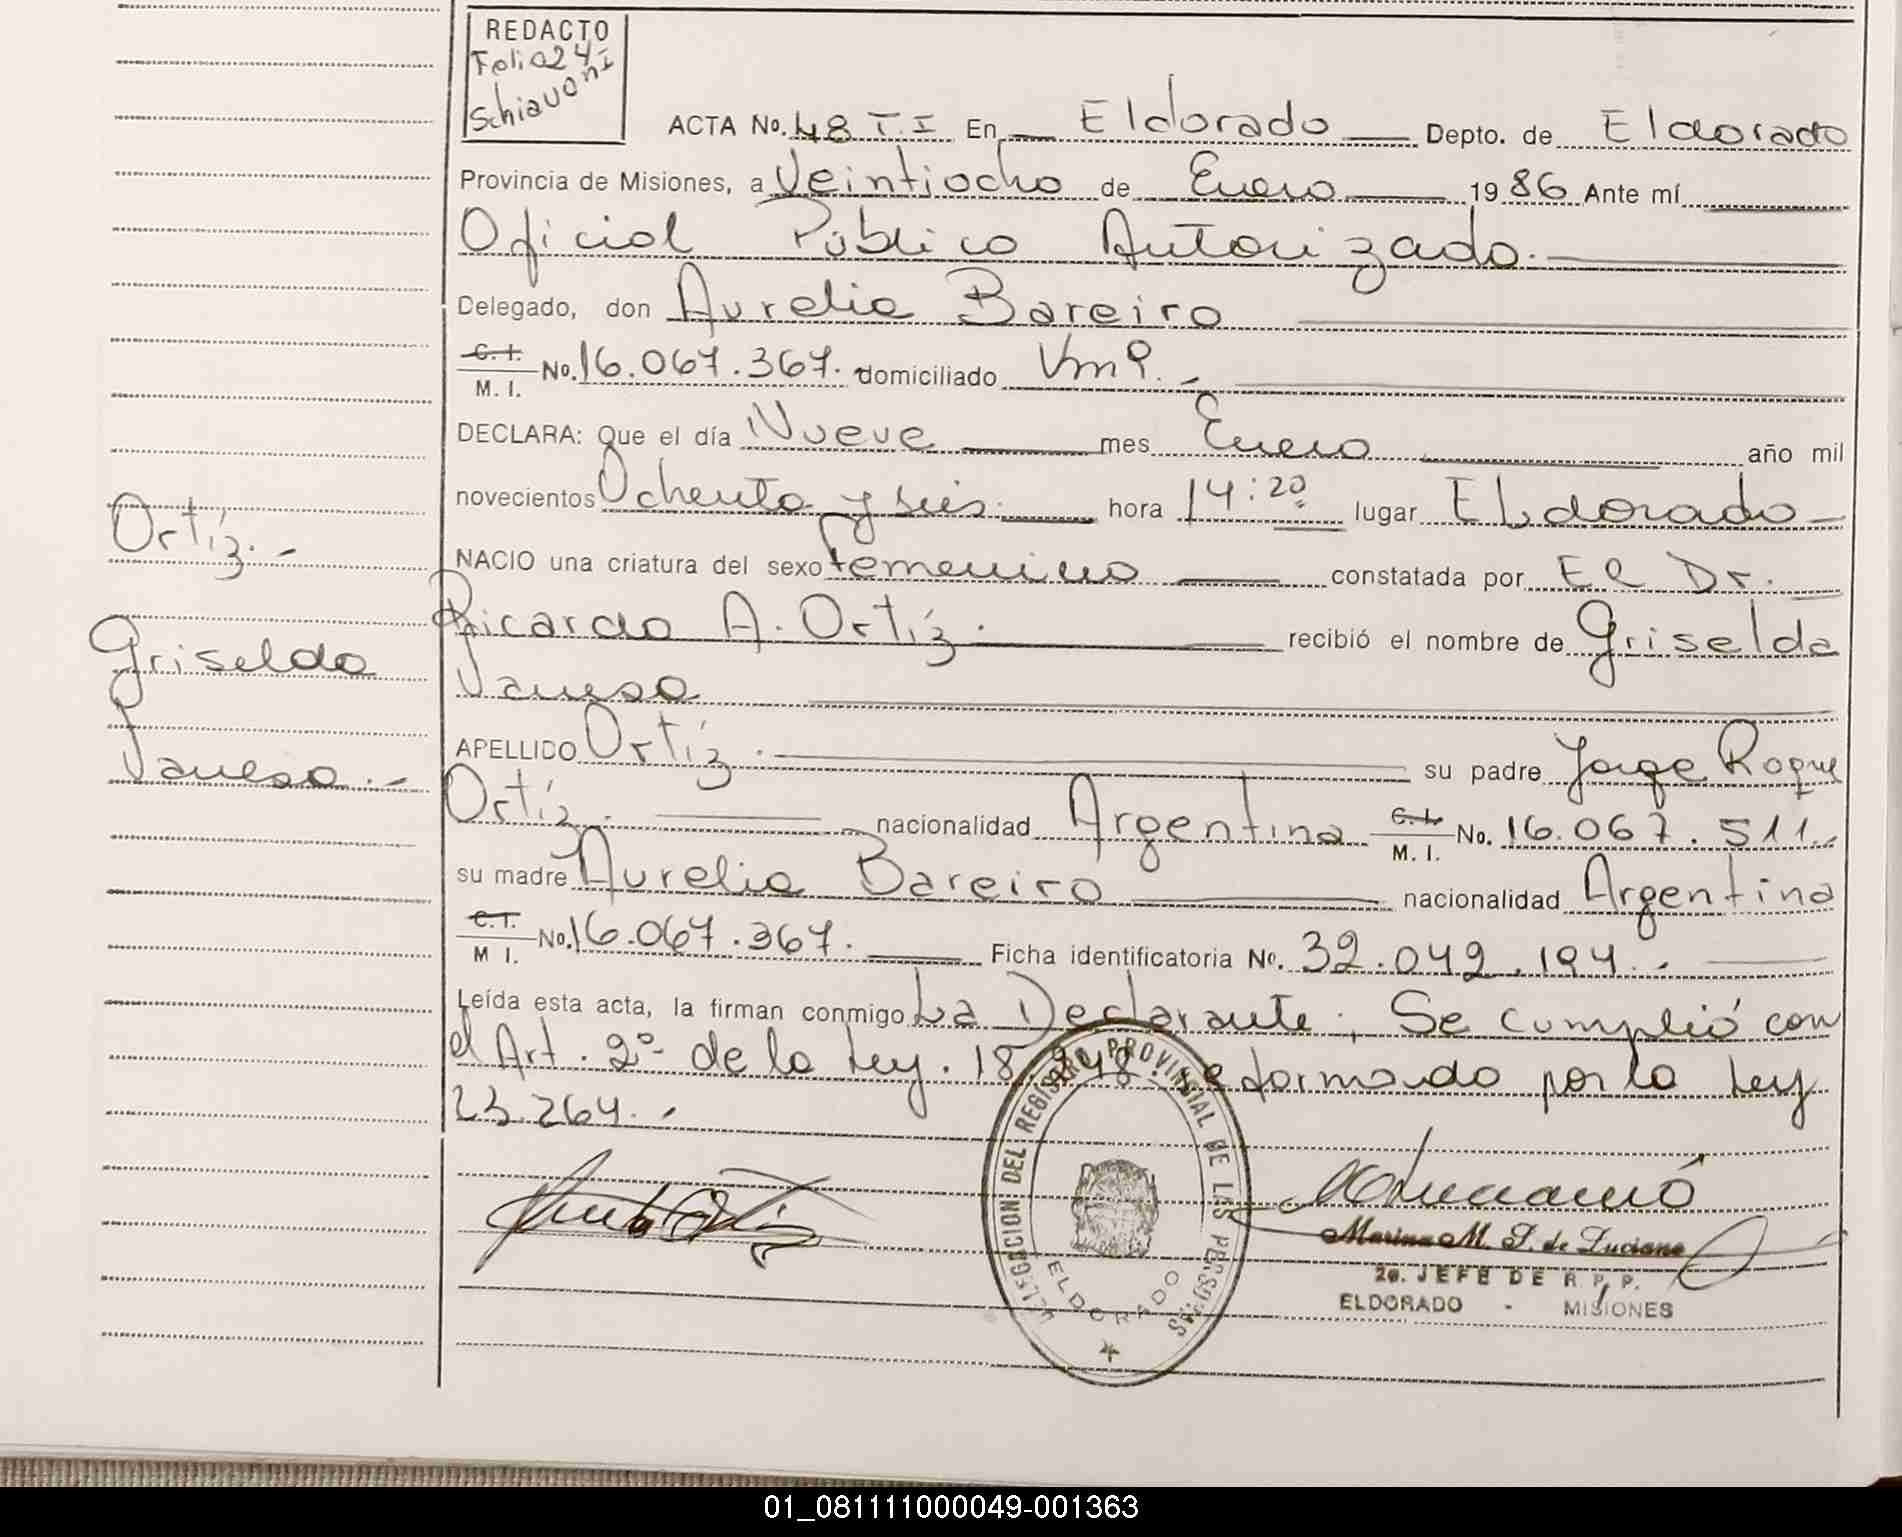 REDACTO
Folio 24
Schiavoni
ACTA No. 48 T.I En Eldorado Depto. de Eldorado
Provincia de Misiones, a Veintiocho de Enero 1986 Ante mí
Oficial Publico Autorizado.
Delegado, don Aurelia Bareiro
C.I. M. I. No. 16.067.367. domiciliado
DECLARA: Que el día Nueve mes Enero año mil
novecientos Ochenta y seis. hora 14:20 lugar Eldorado
NACIO una criatura del sexo femenino constatada por El Dr.
Ricardo A. Ortíz. recibió el nombre de Griselda
Vanesa
APELLIDO Ortíz. su padre Jorge Roque
Ortíz. nacionalidad Argentina C.I. M. I. No. 16.067.511.
su madre Aurelia Bareiro nacionalidad Argentina
C.I. M I. No. 16.067.367. Ficha identificatoria No. 32.042.194.
Leída esta acta, la firman conmigo La Declarante. Se cumplió con
el Art. 2º de la Ley. 18.248. reformando por la Ley
23.264.
Ortíz.-
Griselda
Vanesa.-
DELEGACION DEL REGISTRO PROVINCIAL DE LAS PERSONAS
ELDORADO
Marina M. S. de Luciano
2o. JEFE DE R. P. P.
ELDORADO - MISIONES
01_081111000049-001363